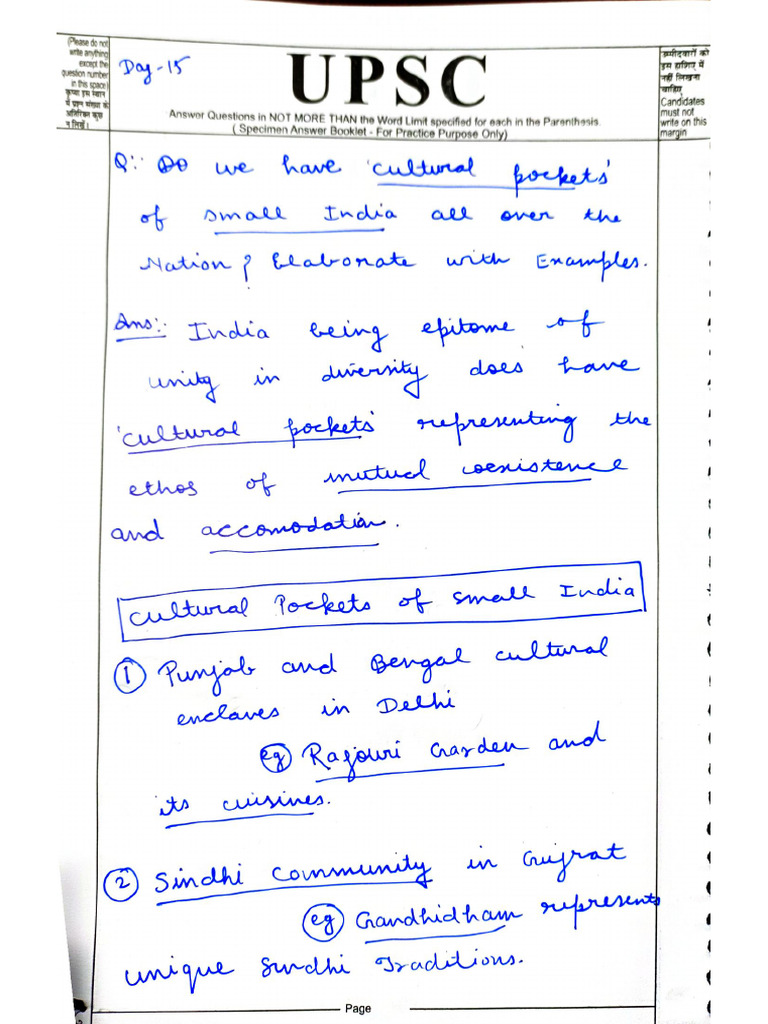 (Please do not
write anything
except the
question number
in this space)
कृपया इस स्थान
में प्रश्न संख्या के
अतिरिक्त कुछ
न लिखें।
Day-15
UPSC
Answer Questions in NOT MORE THAN the Word Limit specified for each in the Parenthesis.
( Specimen Answer Booklet - For Practice Purpose Only)
उम्मीदवारों को
इस हाशिए में
नहीं लिखना
चाहिए
Candidates
must not
write on this
margin
Q:- Do we have 'cultural pockets'
of small India all over the
Nation? Elaborate with Examples.
Ans:- India being epitome of
unity in diversity does have
'cultural pockets' representing the
ethos of mutual coexistence
and accomodation.
Cultural Pockets of small India
① Punjab and Bengal cultural
enclaves in Delhi
eg Rajouri Garden and
its cuisines.
② Sindhi Community in Gujrat
eg Gandhidham represents
unique Sindhi Traditions.
Page